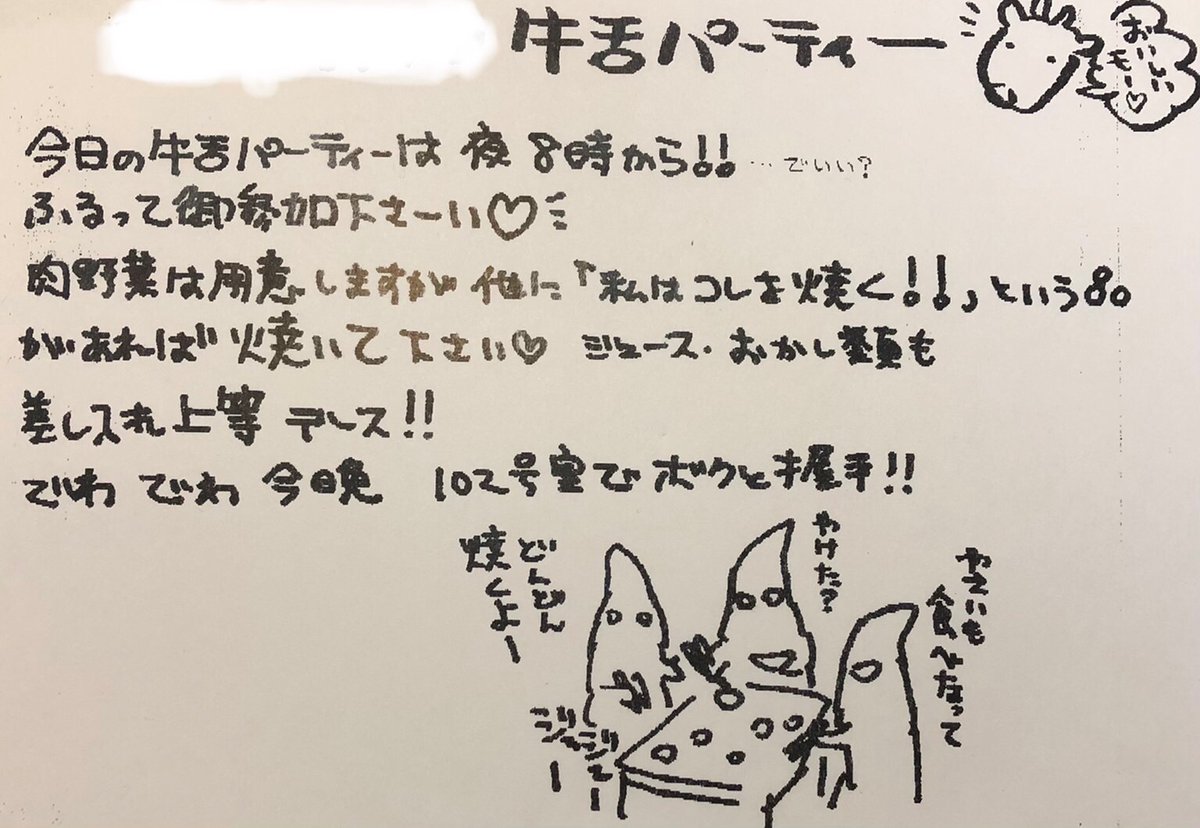 牛舌パーティー
おいしい
モー♡
今日の牛舌パーティーは 夜 8時から!! …でいい?
ふるって御参加下さーい♡
肉野菜は用意しますが 他に「私は コレを 焼く!!」という
があれば 焼いて下さい♡ ジュース・おかし類も
差し入れ上等 デース!!
でわ でわ 今晩 102号室で ボクと握手!!
どんどん
焼くよー
やけた?
やさいも
食べなって
ジュージュー